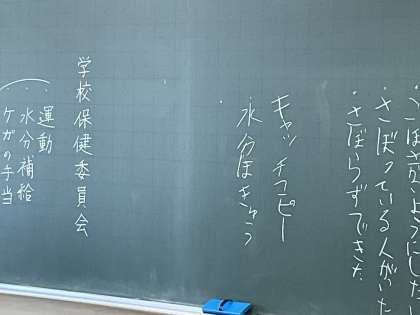 ・さぼっている人がいた
・さぼらずできた
キャッチコピー
水分ほきゅう
学校保健委員会
・運動
・水分補給
・ケガの手当